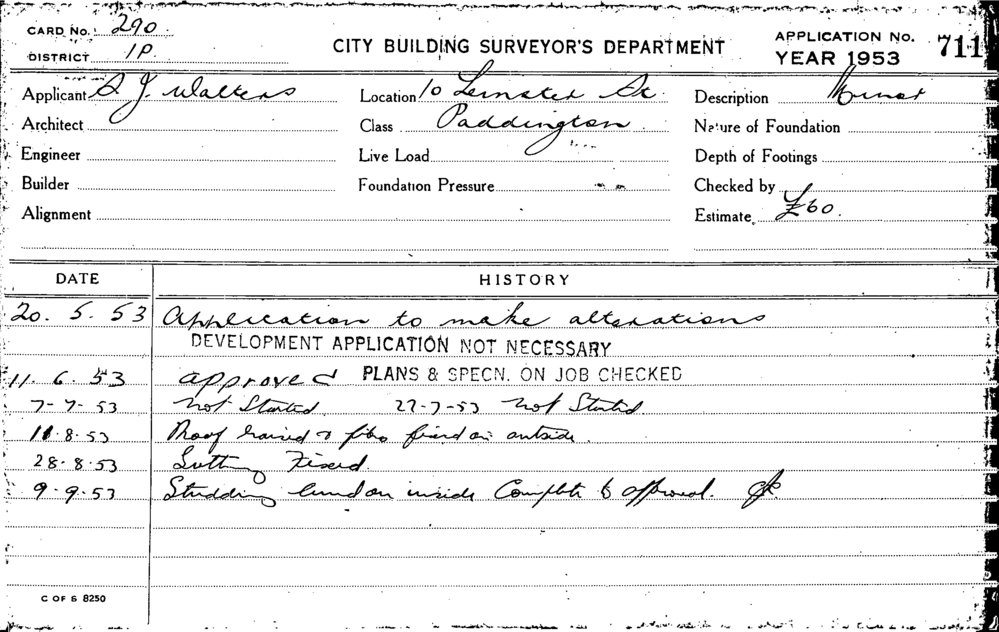 CARD No. 290.
DISTRICT 1P.
CITY BUILDING SURVEYOR'S DEPARTMENT
APPLICATION No. 711
YEAR 1953
Applicant S. J. Walters
Location 10 Leinster St.
Description Minor
Architect
Class Paddington
Nature of Foundation
Engineer
Live Load
Depth of Footings
Builder
Foundation Pressure
Checked by
Alignment
Estimate £60.
DATE HISTORY
20. 5. 53 Application to make alterations
DEVELOPMENT APPLICATION NOT NECESSARY
11. 6. 53 approved PLANS & SPECN. ON JOB CHECKED
7-7-53 Not Started 27-7-53 Not Started
11.8.53 Roof raised & fibro fixed on outside.
28.8.53 Fixed.
9.9.53 Studding lined on inside Complete to approval.
C OF S 8250